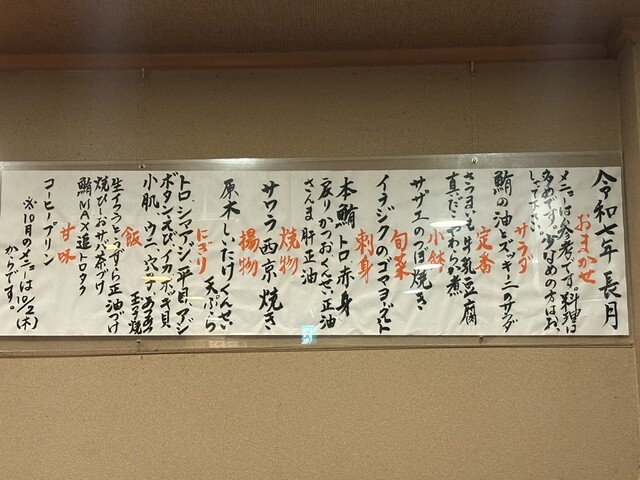 令和七年 長月
おまかせ
メニューは参考です。料理は
多めです。少なめの方はお、
して下さい。
サラダ
鮪の油とズッキーニのサラダ
定番
さつまいも牛乳豆腐
真だこやわらか煮
小鉢
サザエのつぼ焼き
旬菜
イチジクのゴマヨーグルト
刺身
本鮪 トロ 赤身
戻りかつおくんせい正油
さんま 肝正油
焼物
サワラ西京焼き
揚物
原木しいたけくんせい
天ぷら
にぎり
トロ、シマアジ、平目、アジ
ボタンえび、イカ、ホッキ貝
小肌、ウニ、穴子
玉子焼
飯
生すじこ すずら正油づけ
焼びしおサバ茶づけ
鮪MAX追トロタク
甘味
コーヒープリン
※10月のメニューは10/2(木)
からです。